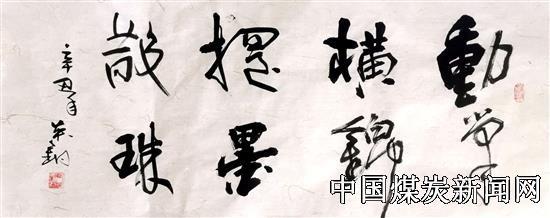 動筆
橫錦
搖墨
散珠
辛丑年
中国煤炭新闻网